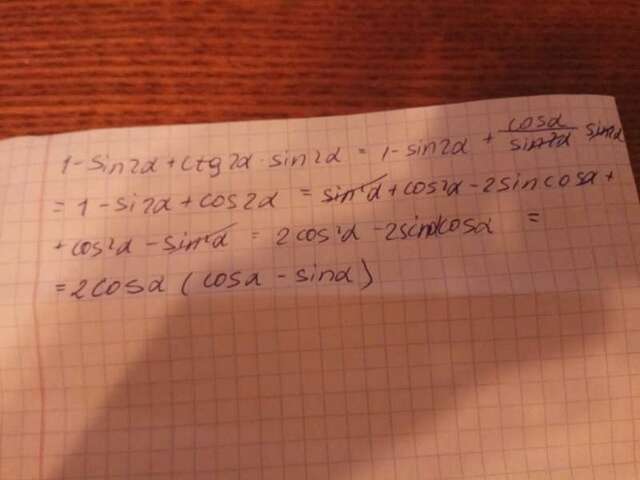 1 - sin2α + ctg2α · sin2α = 1 - sin2α + cosα/sin2α sin2α
= 1 - si2α + cos2α = sin²α + cos²α - 2sincosα +
+ cos²α - sin²α = 2cos²α - 2sinαcosα =
= 2cosα (cosα - sinα)